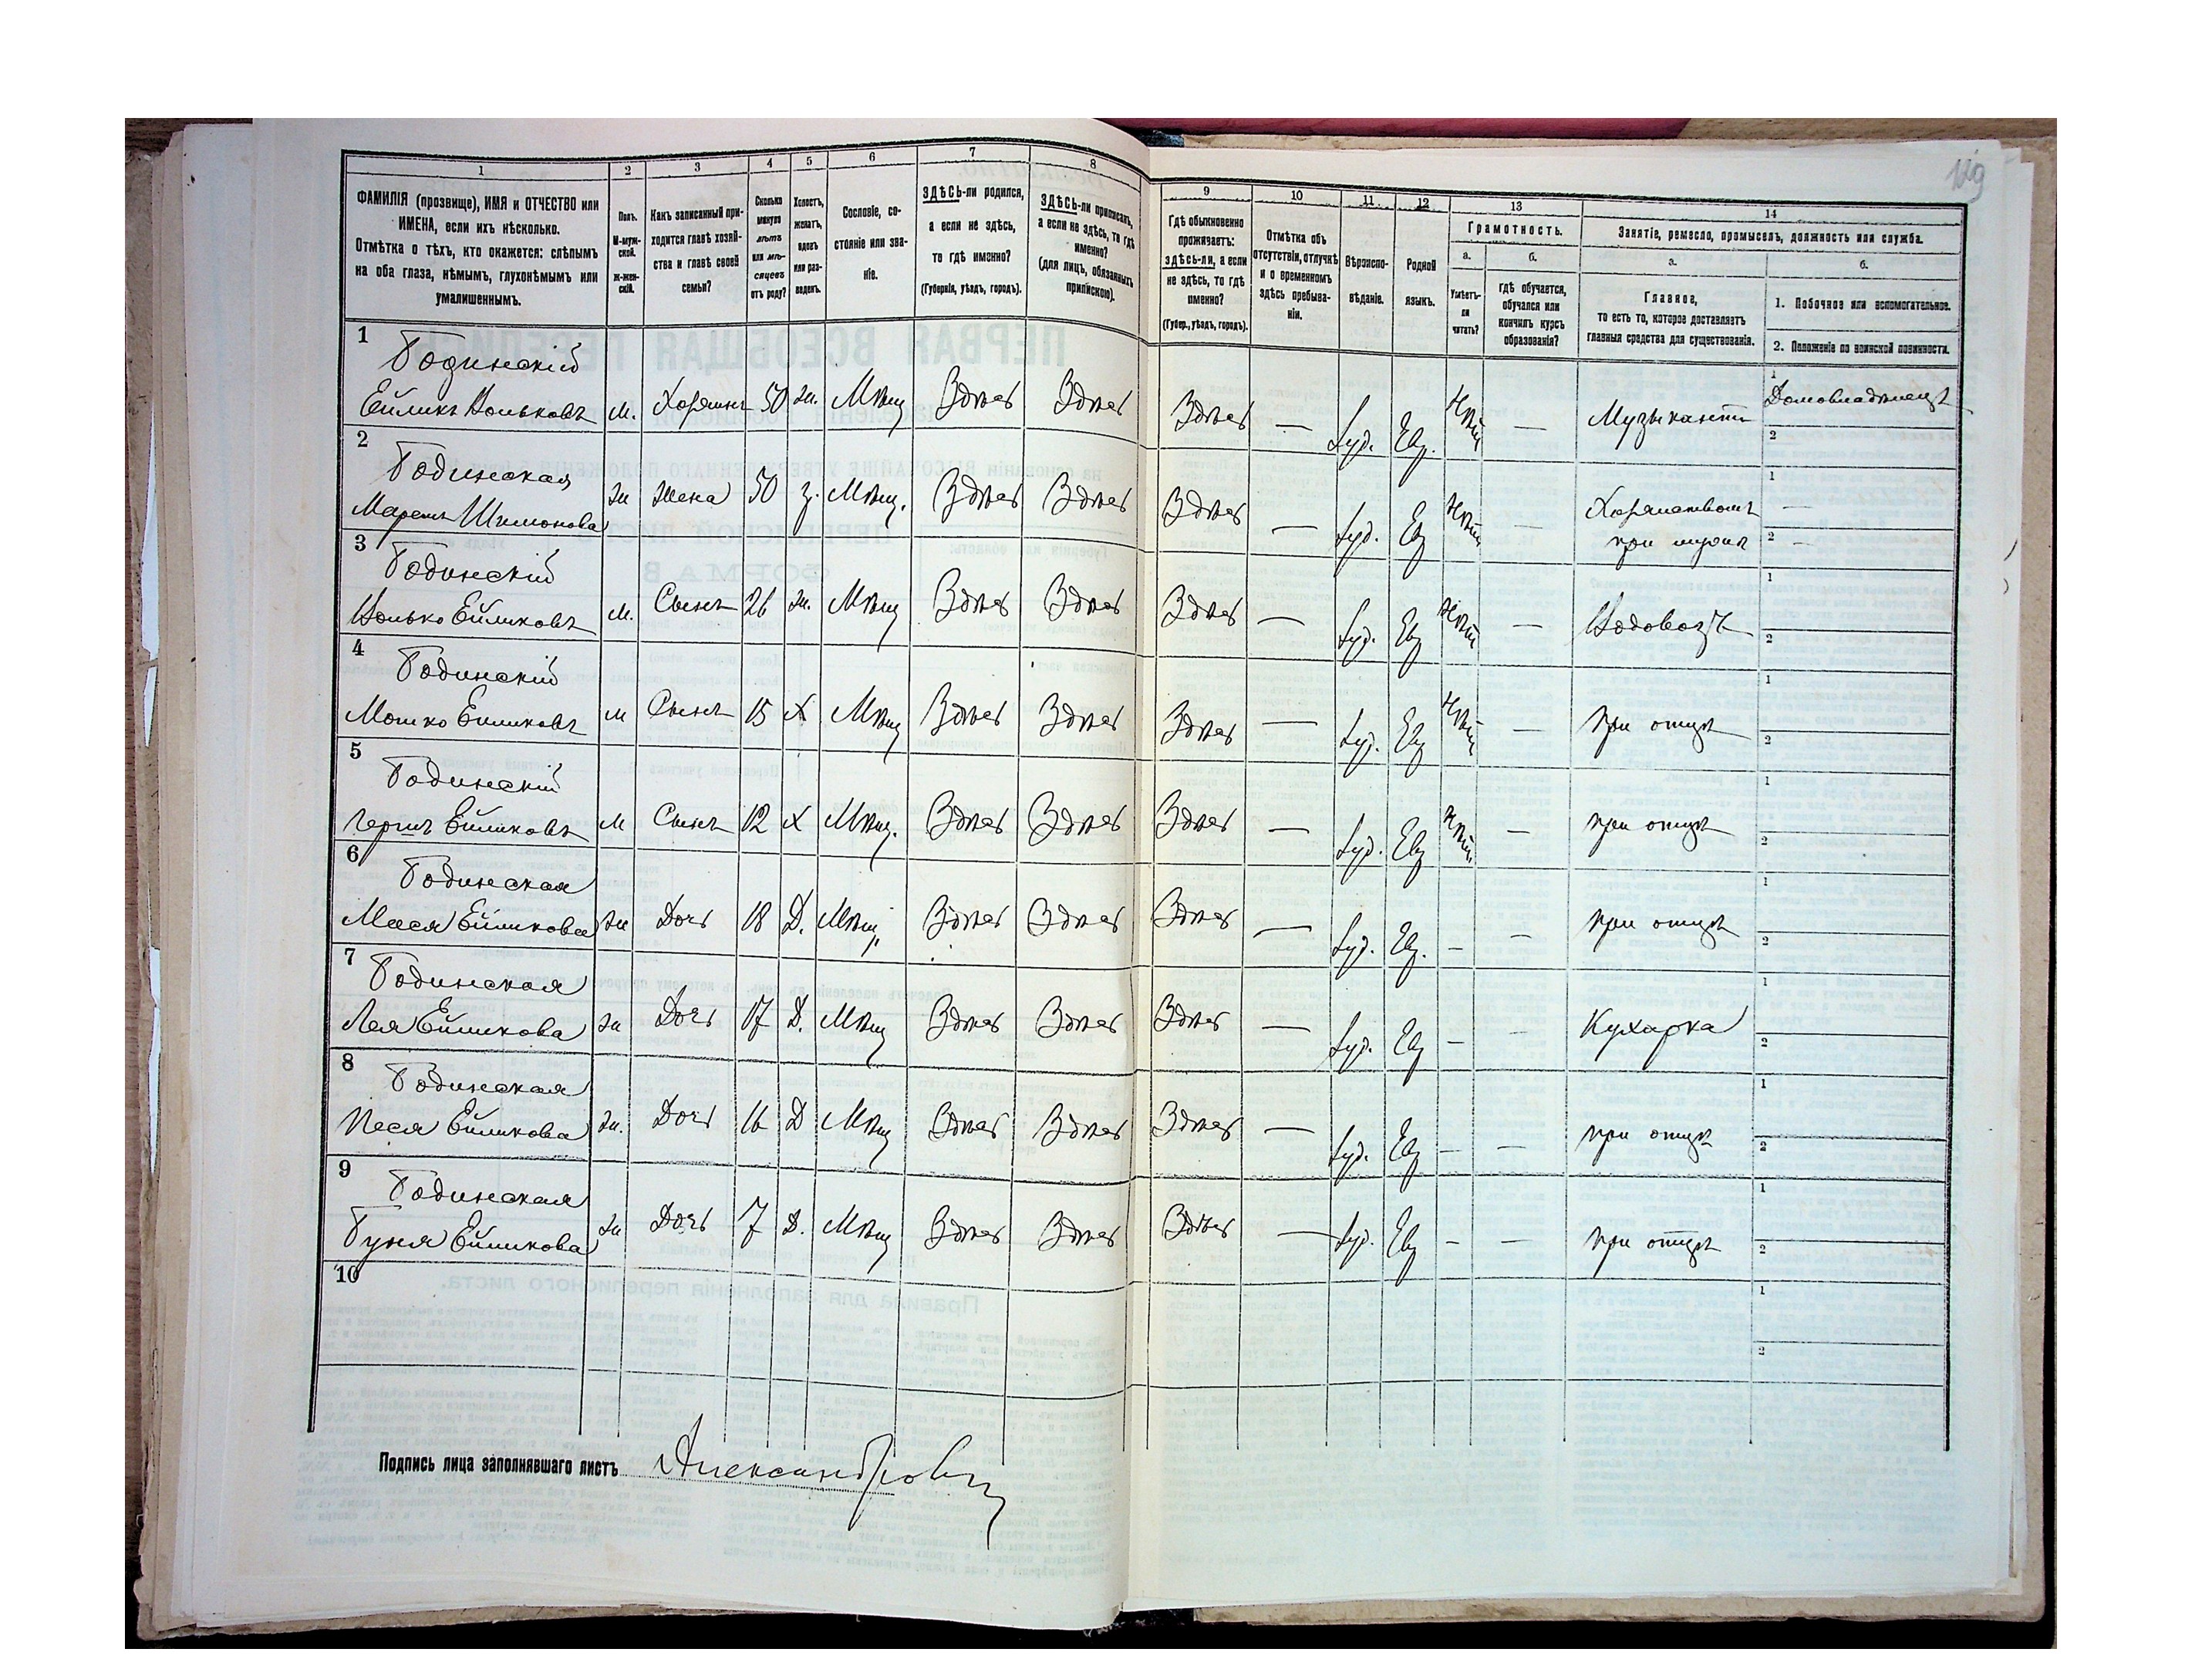 119
1 2 3 4 5 6 7 8 9 10 11 12 13 14
ФАМИЛІЯ (прозвище), ИМЯ и ОТЧЕСТВО или
ИМЕНА, если ихъ нѣсколько.
Отмѣтка о тѣхъ, кто окажется: слѣпымъ
на оба глаза, нѣмымъ, глухонѣмымъ или
умалишеннымъ.
Полъ.
М-муж-
ской.
ж-жен-
скій.
Какъ записанный при-
ходится главѣ хозяй-
ства и главѣ своей
семьи?
Сколько
минуло
лѣтъ
или мѣ-
сяцевъ
отъ роду?
Холостъ,
женатъ,
вдовъ
или раз-
веденъ.
Сословіе, со-
стояніе или зва-
ніе.
ЗДѢСЬ-ли родился,
а если не здѣсь,
то гдѣ именно?
(Губернія, уѣздъ, городъ).
ЗДѢСЬ-ли приписанъ,
а если не здѣсь, то гдѣ
именно?
(для лицъ, обязанныхъ
припискою).
Гдѣ обыкновенно
проживаетъ:
здѣсь-ли, а если
не здѣсь, то гдѣ
именно?
(Губер., уѣздъ, городъ).
Отмѣтка объ
отсутствіи, отлучкѣ
и о временномъ
здѣсь пребыва-
ніи.
Вѣроиспо-
вѣданіе.
Родной
языкъ.
Грамотность.
а.
Умѣетъ-
ли
читать?
б.
гдѣ обучается,
обучался или
кончилъ курсъ
образованія?
Занятіе, ремесло, промыселъ, должность или служба.
а.
Главное,
то есть то, которое доставляетъ
главныя средства для существованія.
б.
1. Побочное или вспомогательное.
2. Положеніе по воинской повинности.
1 Годинскій
Ейликъ Вольковъ м. Хозяинъ 50 ж. Мѣщ Здѣсь Здѣсь Здѣсь — Іуд. Евр. Нѣтъ — Музыкантъ 1 Домовладѣлецъ
2
2 Годинская
Шимонова ж жена 50 з. Мѣщ. Здѣсь Здѣсь Здѣсь — Іуд. Евр Нѣтъ — Хозяйствомъ 1 —
при мужѣ 2 —
3 Годинскій
Волько Ейликовъ м. Сынъ 26 ж. Мѣщ Здѣсь Здѣсь Здѣсь — Іуд. Евр Нѣтъ — Водовозъ 1
2
4 Годинскій
Мошко Ейликовъ м Сынъ 15 х Мѣщ Здѣсь Здѣсь Здѣсь — Іуд. Евр Нѣтъ — при отцѣ 1
2
5 Годинскій
Гершъ Ейликовъ м Сынъ 12 х Мѣщ. Здѣсь Здѣсь Здѣсь — Іуд. Евр Нѣтъ — при отцѣ 1
2
6 Годинская
Мася Ейликова ж Дочь 18 Д. Мѣщ. Здѣсь Здѣсь Здѣсь — Іуд. Евр. — — при отцѣ 1
2
7 Годинская
Лея Ейликова ж Дочь 17 Д. Мѣщ Здѣсь Здѣсь Здѣсь — Іуд. Евр — — Кухарка 1
2
8 Годинская
Песя Ейликова ж. Дочь 16 Д Мѣщ Здѣсь Здѣсь Здѣсь — Іуд. Евр — — при отцѣ 1
2
9 Годинская
Гуня Ейликова ж Дочь 7 Д. Мѣщ Здѣсь Здѣсь Здѣсь — Іуд. Евр — — при отцѣ 1
2
10 1
2
Подпись лица заполнявшаго листъ